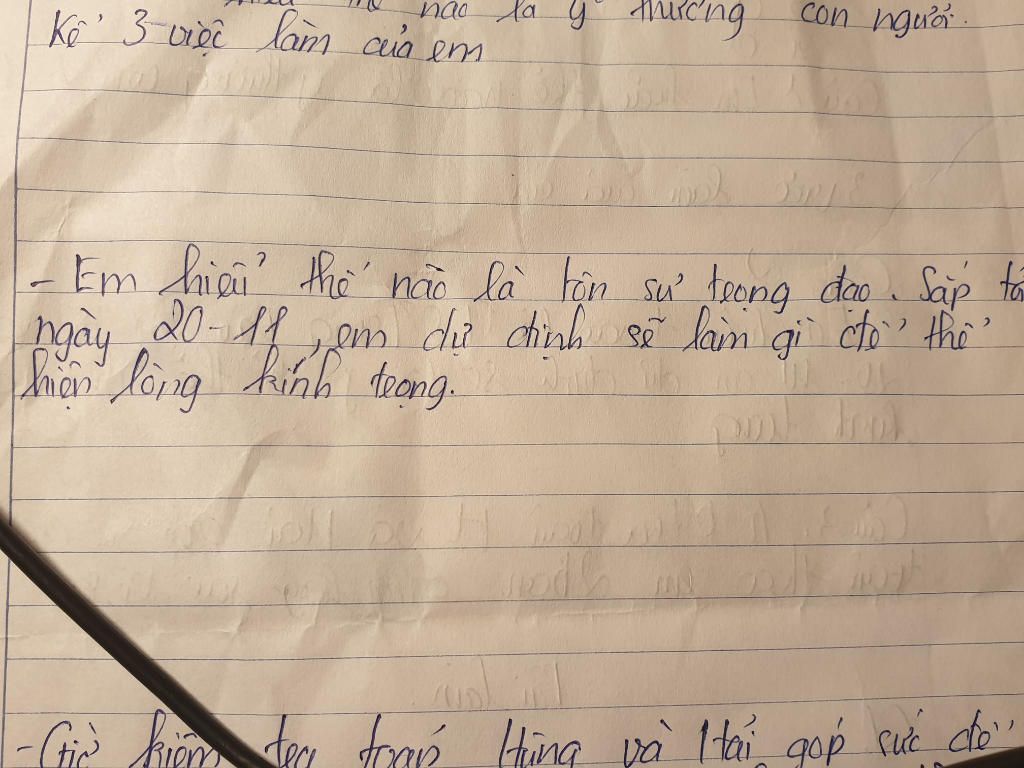 nào là y thương con người.
Kể 3 việc làm của em
- Em hiểu thế nào là tôn sư trọng đạo. Sắp tới
ngày 20-11, em dự định sẽ làm gì để thể
hiện lòng kính trọng.
- Giờ kiểm tra toán Hùng và Hải góp sức để